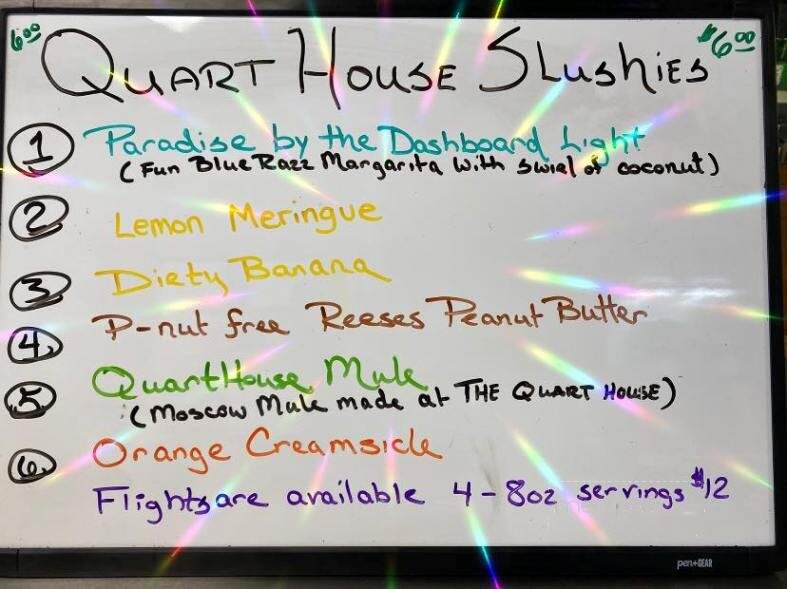 6.00 QUART HOUSE SLushiES $6.00
1 Paradise by the Dashboard Light
(Fun Blue Razz Margarita with swirl of coconut)
2 Lemon Meringue
3 Dirty Banana
4. P-nut free Reeses Peanut Butter
5 QuartHouse Mule
(Moscow Mule made at THE QUART HOUSE)
6. Orange Creamsicle
Flights are available 4-8oz servings $12
pen+GEAR